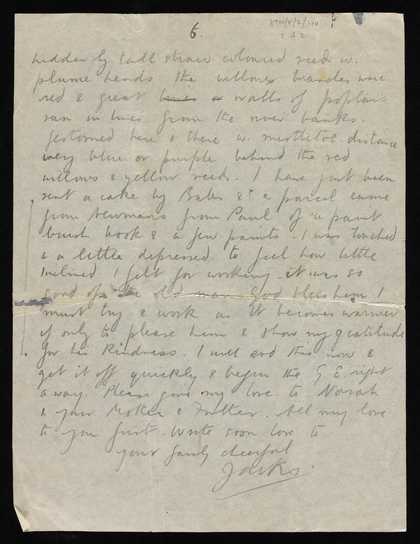 6.
hidden by tall straw coloured reeds w.
plume heads the willows branches were
red & great walls of poplars
ran in lines from the river banks.
festooned here & there w. mistletoe. distance
very blue or purple behind the red
willows & yellow reeds. I have just been
sent a cake by Babs & a parcel came
from Newmans from Paul of a paint
brush book & a few paints. I was touched
& a little depressed to feel how little
inclined I felt for working it was so
good of the old man God bless him. I
must try & work as it becomes warmer
if only to please him & show my gratitude
for his kindness. I will end this now &
get it off quickly & begin the G.E. right
away. Please give my love to Norah
& your Mother & Father. All my love
to you first. Write soon love to
your fairly cheerful
Jacks.